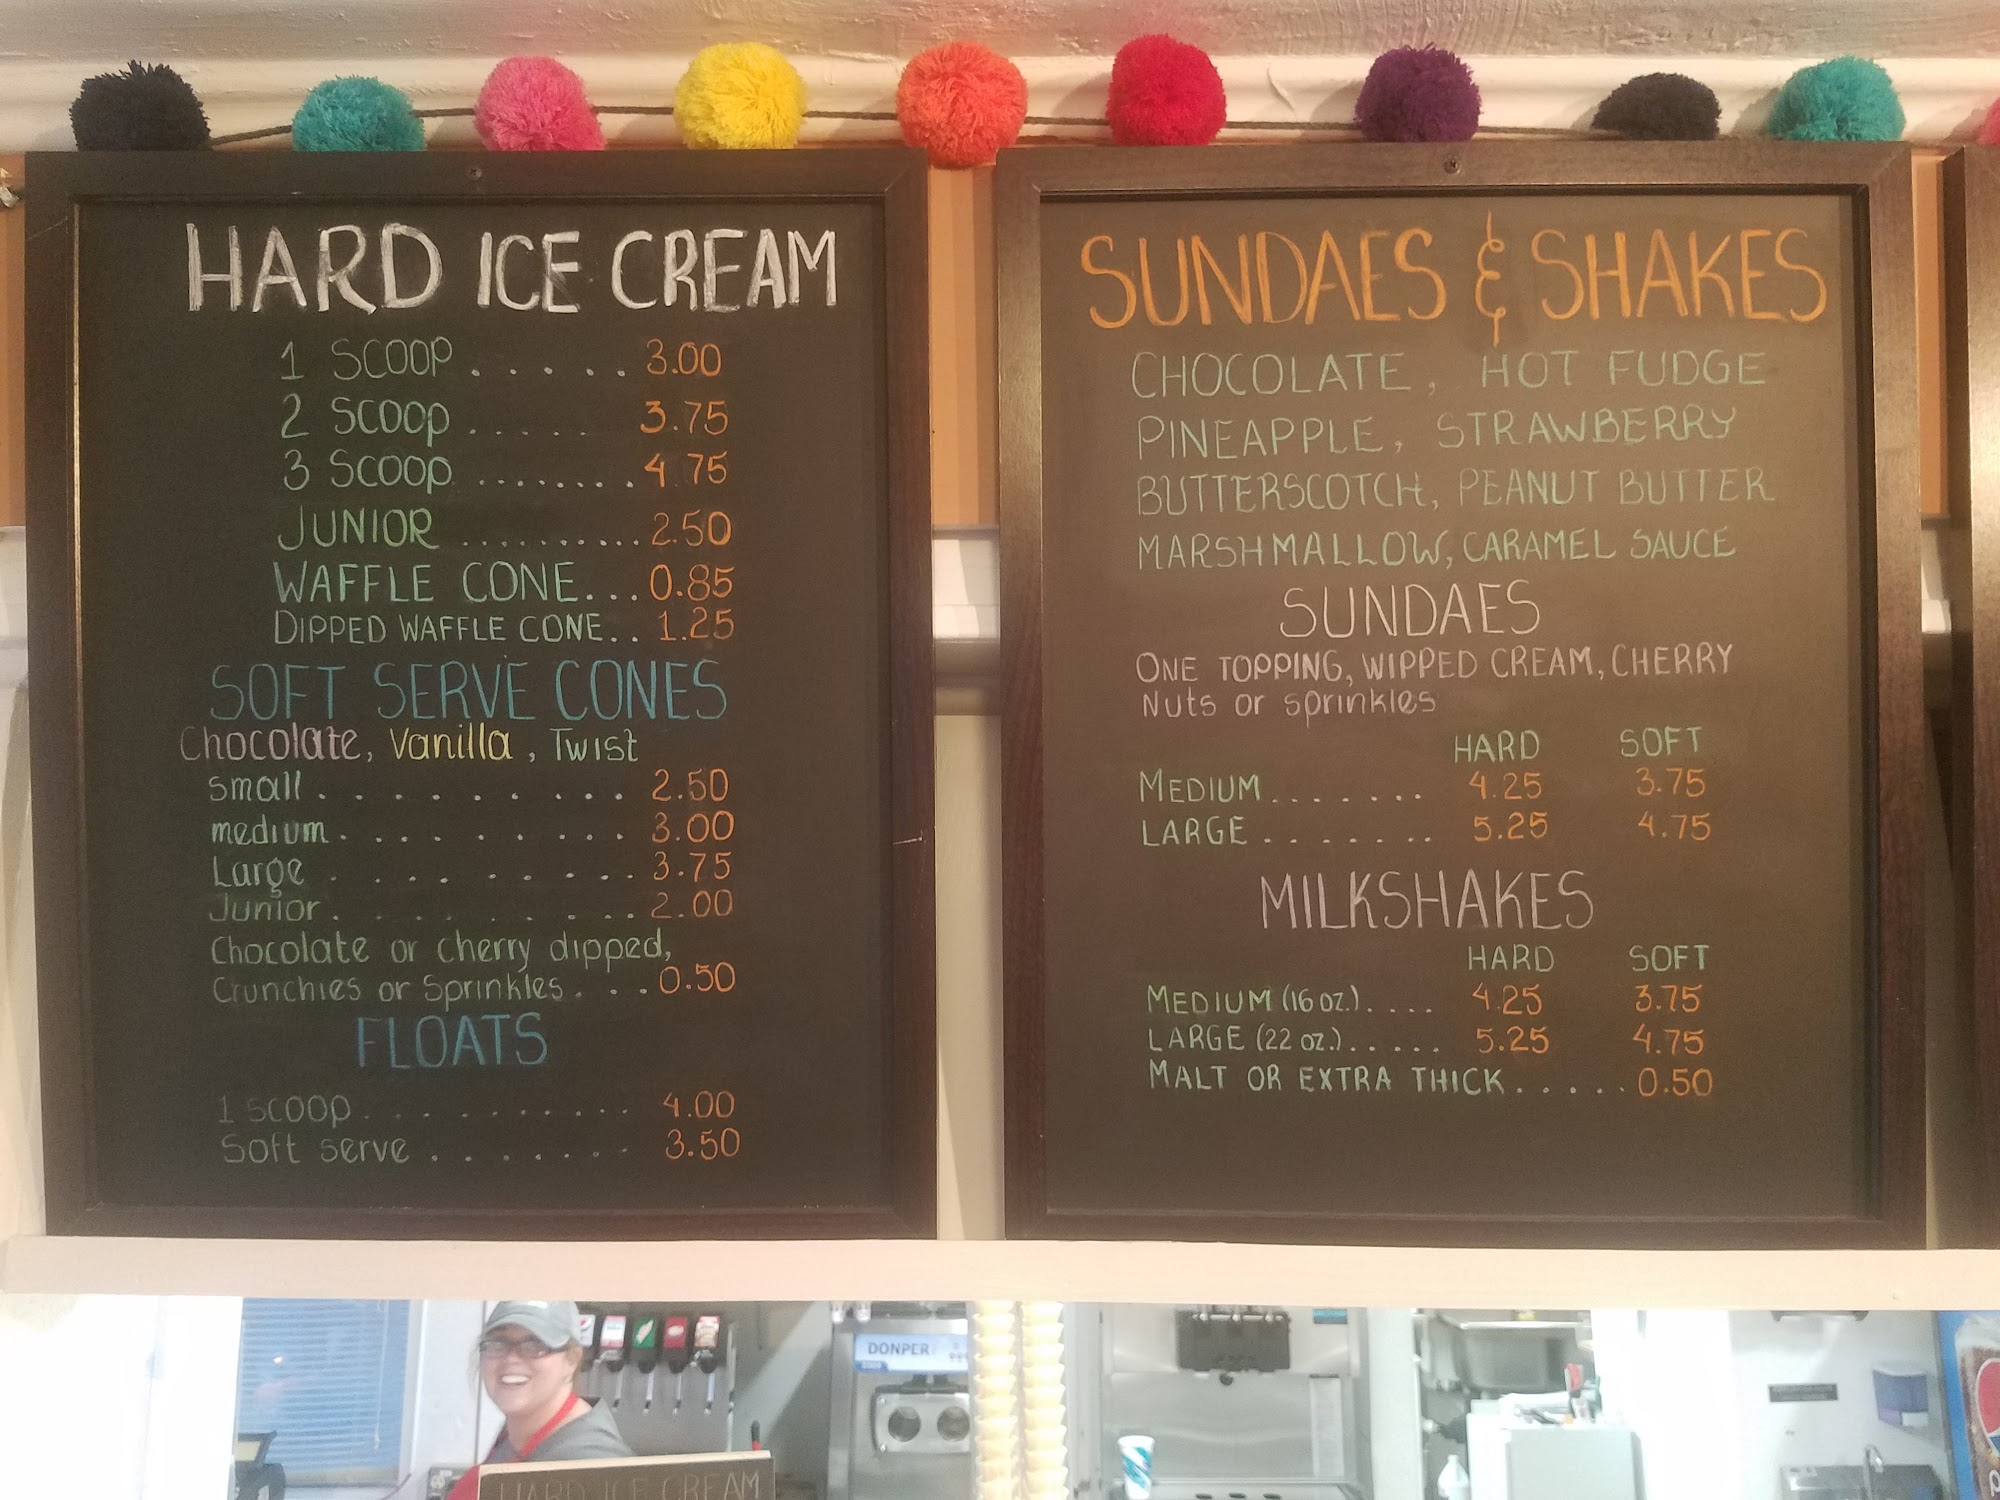 HARD ICE CREAM
1 SCOOP ...... 3.00
2 SCOOP ..... 3.75
3 SCOOP ........ 4.75
JUNIOR .......... 2.50
WAFFLE CONE... 0.85
DIPPED WAFFLE CONE.. 1.25
SOFT SERVE CONES
Chocolate, Vanilla, Twist
small.......... 2.50
medium......... 3.00
Large ......... 3.75
Junior.......... 2.00
Chocolate or cherry dipped,
Crunchies or Sprinkles... 0.50
FLOATS
1 scoop.......... 4.00
Soft serve ....... 3.50
SUNDAES & SHAKES
CHOCOLATE, HOT FUDGE
PINEAPPLE, STRAWBERRY
BUTTERSCOTCH, PEANUT BUTTER
MARSHMALLOW, CARAMEL SAUCE
SUNDAES
ONE TOPPING, WIPPED CREAM, CHERRY
Nuts or sprinkles
HARD SOFT
MEDIUM....... 4.25 3.75
LARGE....... 5.25 4.75
MILKSHAKES
HARD SOFT
MEDIUM (16 OZ.).... 4.25 3.75
LARGE (22 OZ.)..... 5.25 4.75
MALT OR EXTRA THICK..... 0.50
DONPER
HARD ICE CREAM